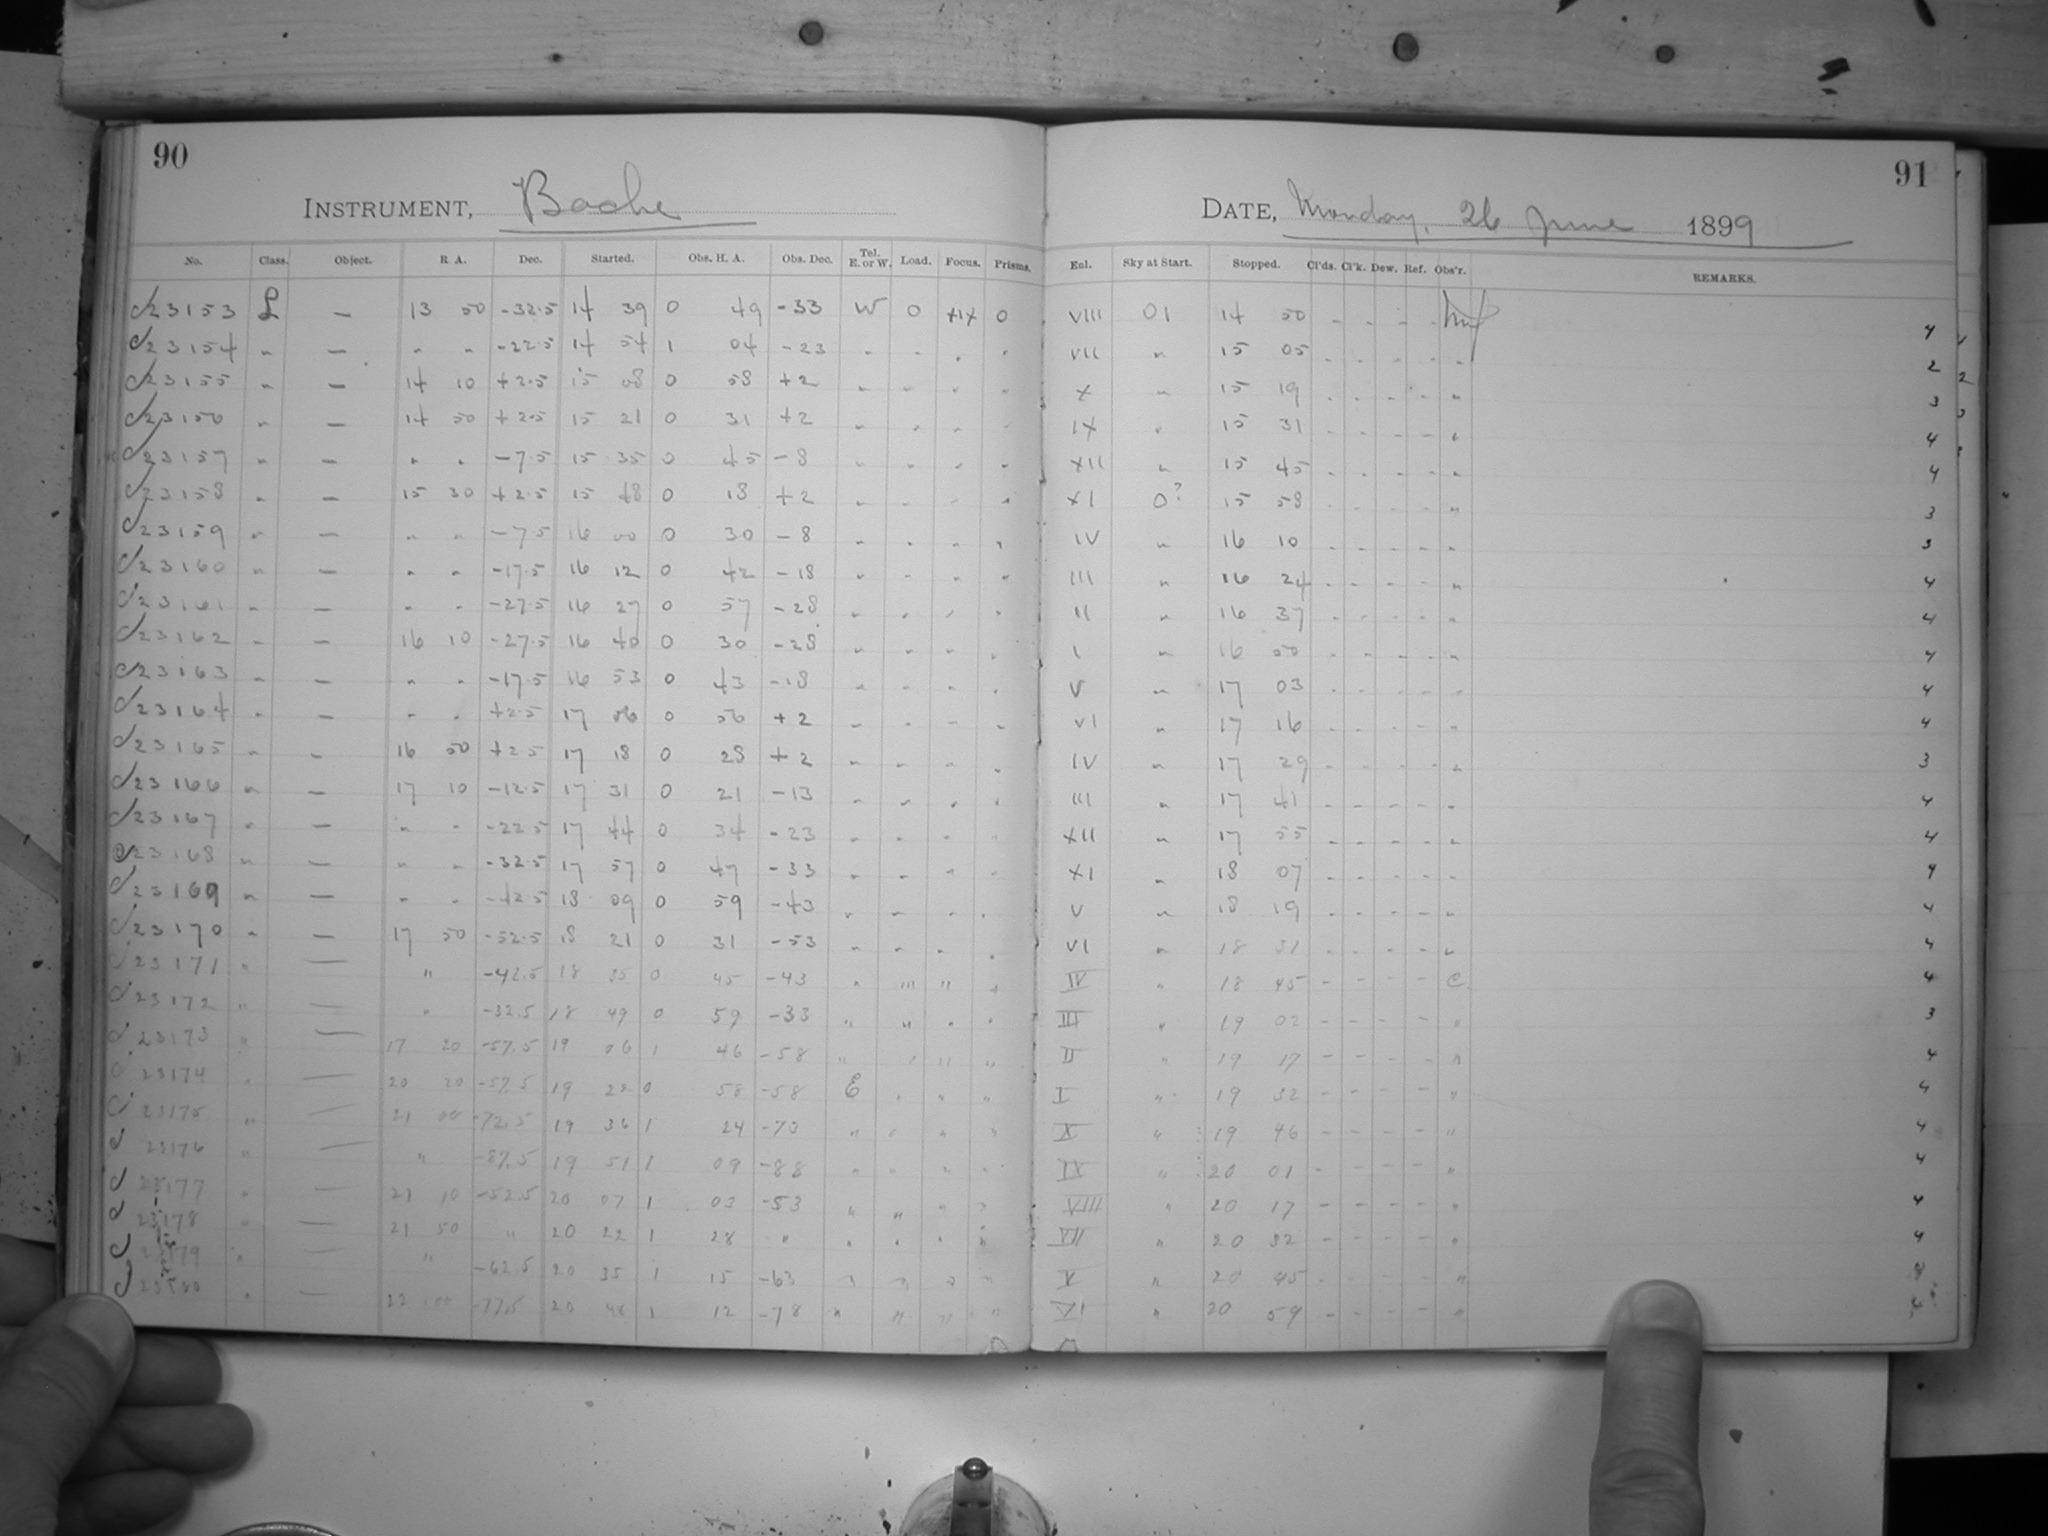 90
INSTRUMENT, Bache
No. Class. Object. R. A. Dec. Started. Obs. H. A. Obs. Dec. Tel. E. or W. Load. Focus. Prisms.
23153 L — 13 50 -32.5 14 39 0 49 -33 W 0 XIX 0
23154 " — " " -22.5 14 54 1 04 -23 " " " "
23155 " — 14 10 +2.5 15 08 0 58 +2 " " " "
23156 " — 14 50 +2.5 15 21 0 31 +2 " " " "
23157 " — " " -7.5 15 35 0 45 -8 " " " "
23158 " — 15 30 +2.5 15 48 0 18 +2 " " " "
23159 " — " " -7.5 16 00 0 30 -8 " " " "
23160 " — " " -17.5 16 12 0 42 -18 " " " "
23161 " — " " -27.5 16 27 0 57 -28 " " " "
23162 " — 16 10 -27.5 16 40 0 30 -28 " " " "
23163 " — " " -17.5 16 53 0 43 -18 " " " "
23164 " — " " +2.5 17 06 0 56 +2 " " " "
23165 " — 16 50 +2.5 17 18 0 28 +2 " " " "
23166 " — 17 10 -12.5 17 31 0 21 -13 " " " "
23167 " — " " -22.5 17 44 0 34 -23 " " " "
23168 " — " " -32.5 17 57 0 47 -33 " " " "
23169 " — " " -42.5 18 09 0 59 -43 " " " "
23170 " — 17 50 -52.5 18 21 0 31 -53 " " " "
23171 " — " -42.5 18 35 0 45 -43 " " " "
23172 " — " -32.5 18 49 0 59 -33 " " " "
23173 " — 17 20 -57.5 19 06 1 46 -58 " " " "
23174 " — 20 20 -57.5 19 22 0 58 -58 E " " "
23175 " — 21 00 -72.5 19 36 1 24 -73 " " " "
23176 " — " -87.5 19 51 1 09 -88 " " " "
23177 " — 21 10 -52.5 20 07 1 03 -53 " " " "
23178 " — 21 50 " 20 22 1 28 " " " " "
23179 " — " -62.5 20 35 1 15 -63 " " " "
" — 22 00 -77.5 20 48 1 12 -78 " " " "
91
DATE, Monday, 26 June 1899
Enl. Sky at Start. Stopped. Cl'ds. Cl'k. Dew. Ref. Obs'r. REMARKS.
VIII 01 14 50 - - - - 4
VII " 15 05 - - - - " 2
X " 15 19 - - - - " 3
IX " 15 31 - - - - " 4
XII " 15 45 - - - - " 4
XI 0? 15 58 - - - - " 3
IV " 16 10 - - - - " 3
III " 16 24 - - - - " 4
II " 16 37 - - - - " 4
I " 16 50 - - - - " 4
V " 17 03 - - - - " 4
VI " 17 16 - - - - " 4
IV " 17 29 - - - - " 3
III " 17 41 - - - - " 4
XII " 17 55 - - - - " 4
XI " 18 07 - - - - " 4
V " 18 19 - - - - " 4
VI " 18 31 - - - - " 4
IV " 18 45 - - - - C 4
III " 19 02 - - - - " 3
II " 19 17 - - - - " 4
I " 19 32 - - - - " 4
X " 19 46 - - - - " 4
IX " 20 01 - - - - " 4
VIII " 20 17 - - - - " 4
VII " 20 32 - - - - " 4
" 20 45 - - - - "
" 20 59 - - - - "